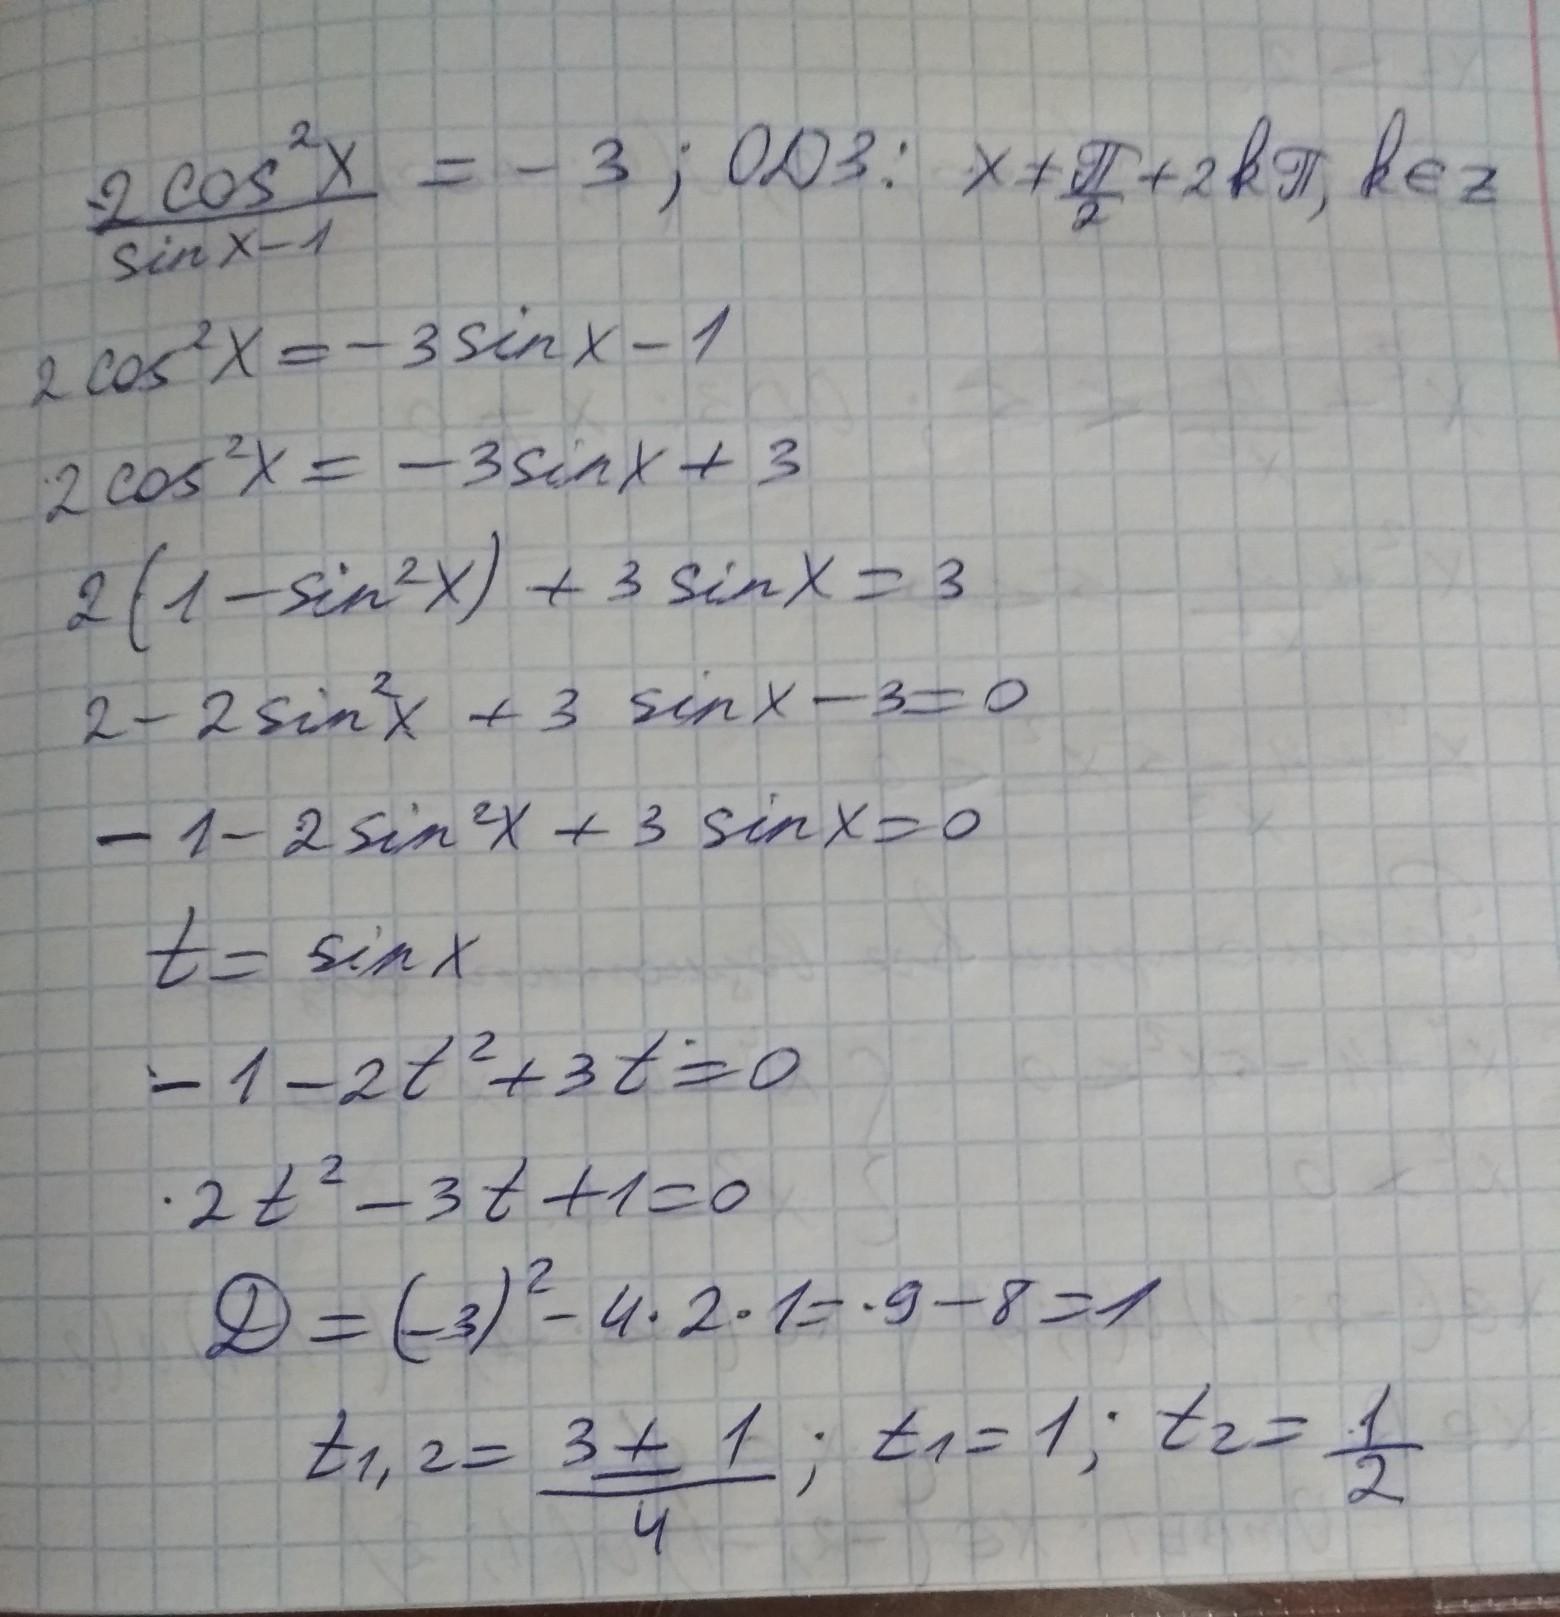 2cos²x/sinx-1 = -3; ОДЗ: x≠π/2+2kπ, k∈z
2cos²x=-3sinx-1
2cos²x=-3sinx+3
2(1-sin²x)+3sinx=3
2-2sin²x+3 sinx-3=0
-1-2sin²x+3sinx=0
t=sinx
-1-2t²+3t=0
2t²-3t+1=0
D=(-3)²-4·2·1=9-8=1
t1,2=3±1/4; t1=1; t2=1/2